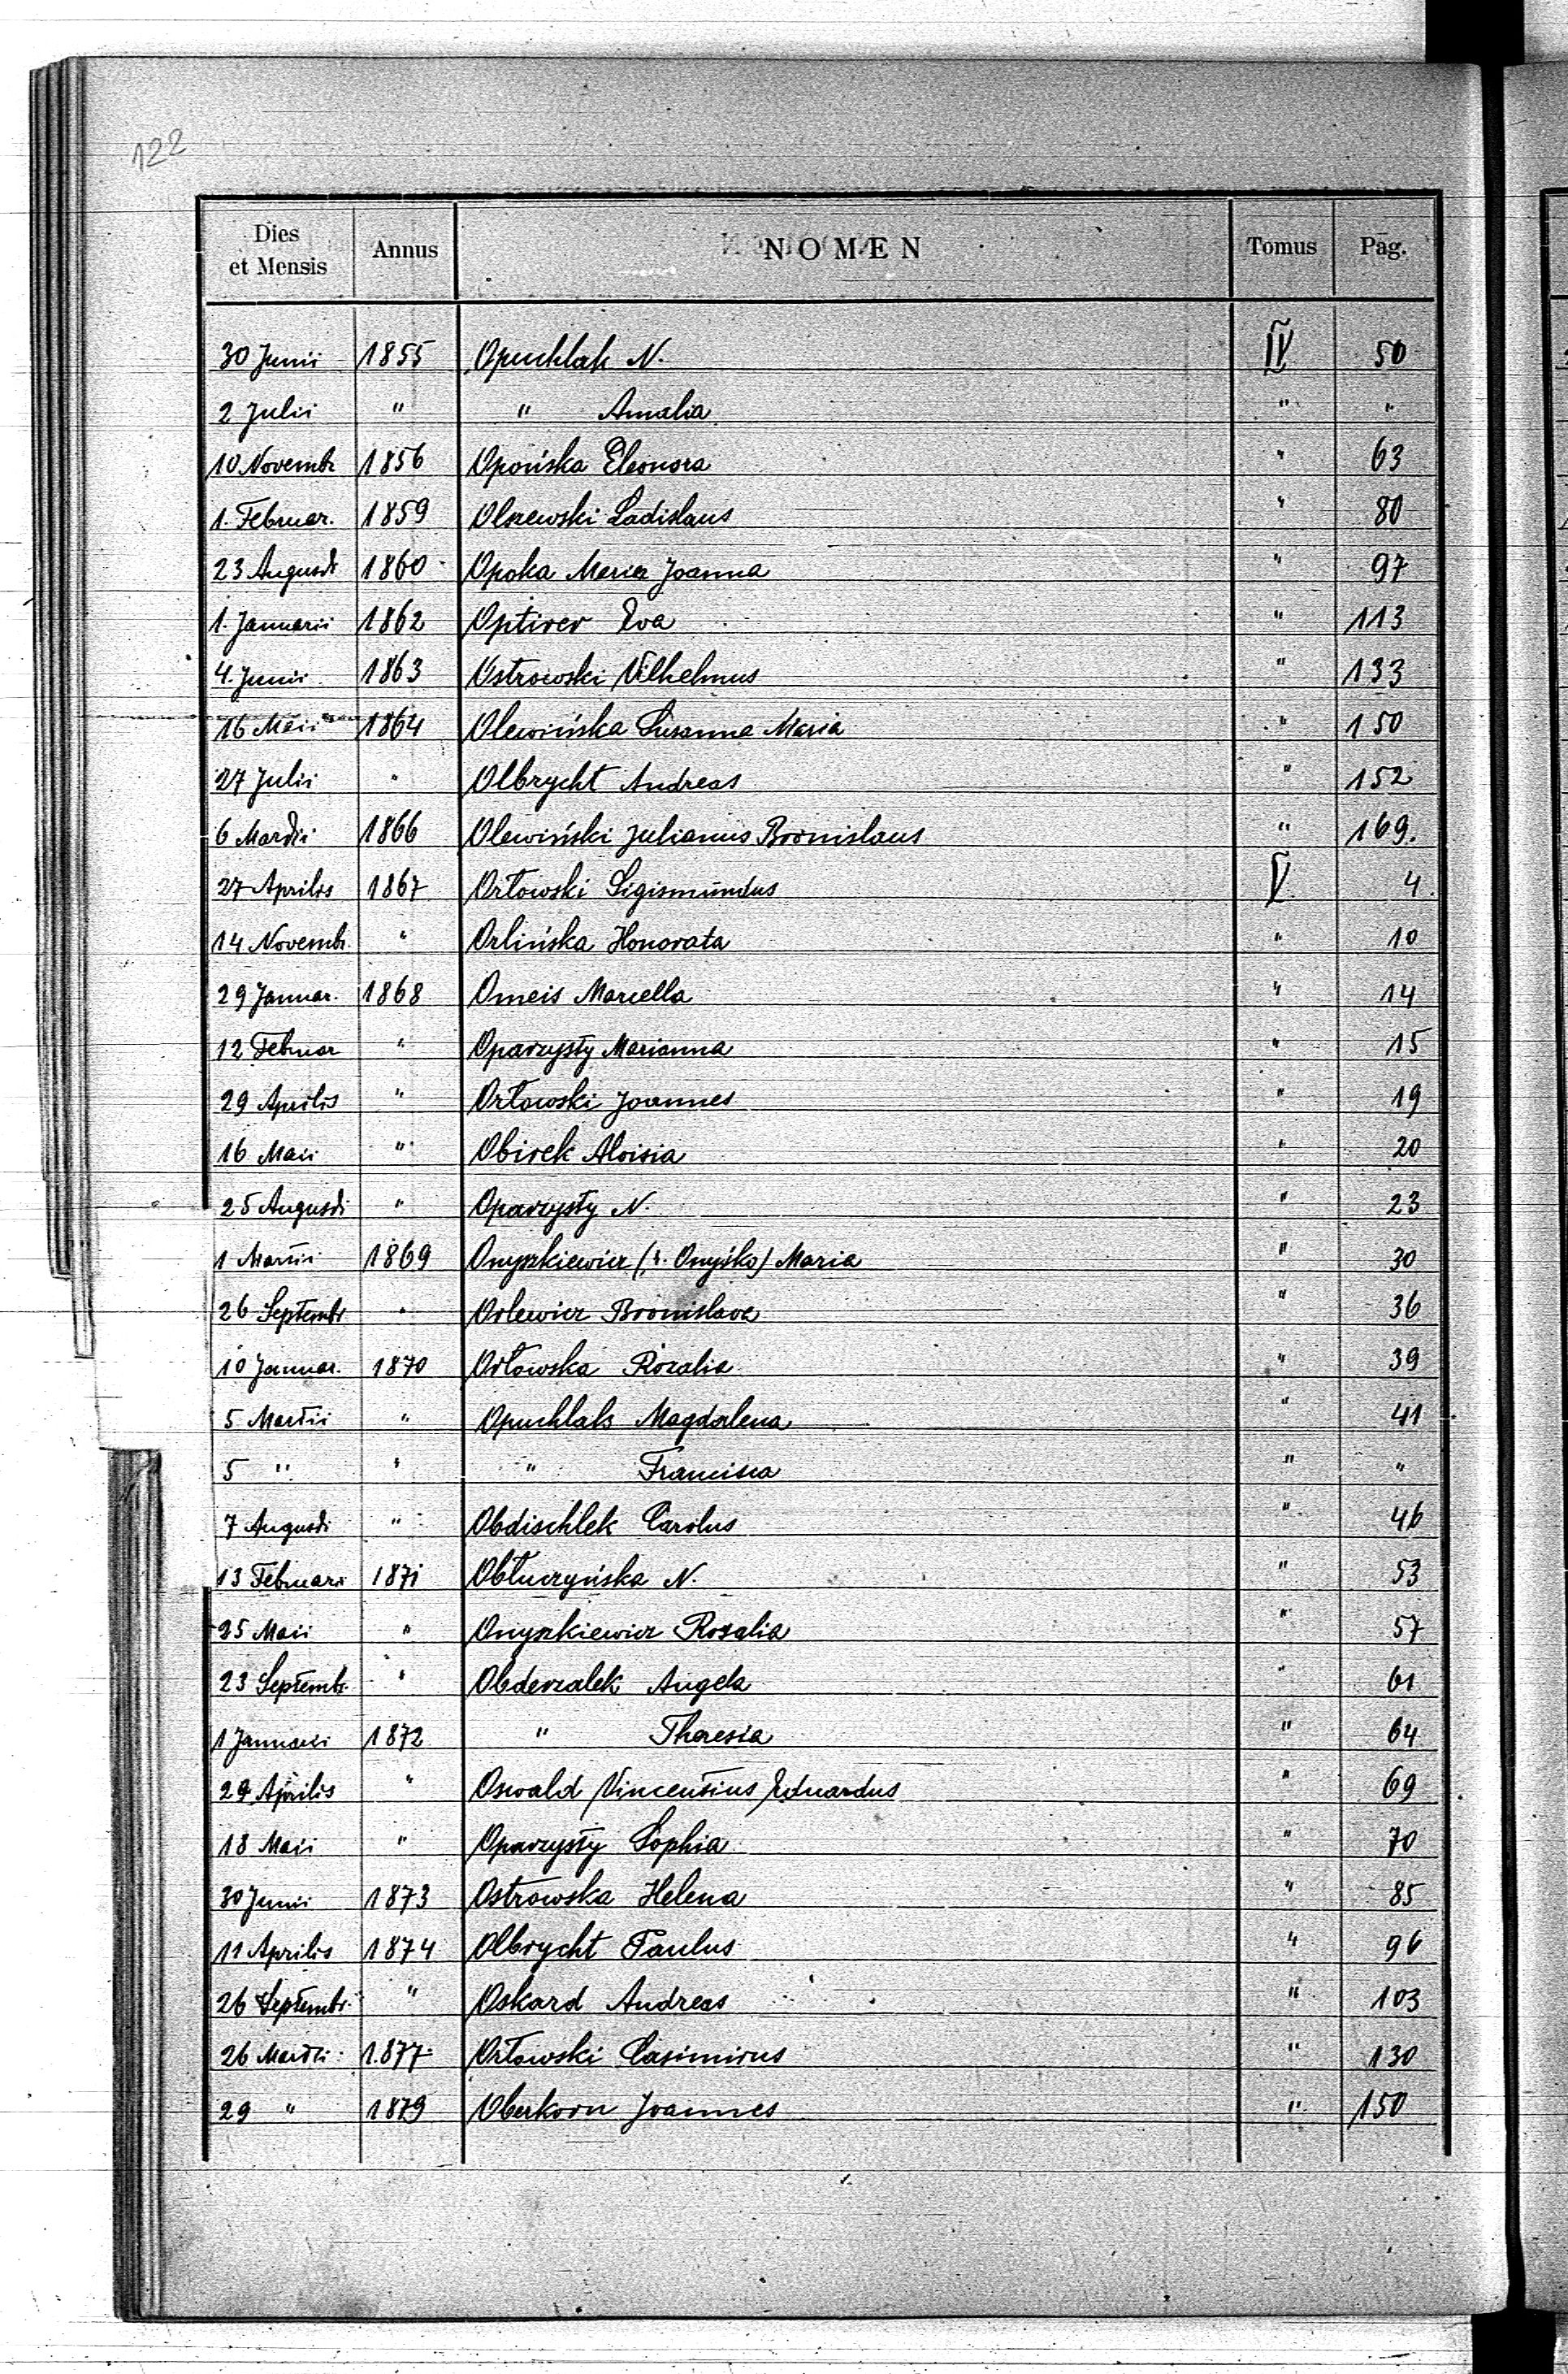 122
Dies et Mensis Annus NOMEN Tomus Pag.
30 Junii 1855 Opuchlak N. IV 50
2 Julii " " Amalia " "
10 Novembr. 1856 Opońska Eleonora " 63
1. Februar. 1859 Olszewski Ladislaus " 80
23 Augusti 1860 Opoka Maria Joanna " 97
1. Januarii 1862 Eva " 113
4. Junii 1863 Ostrowski Vilhelmus " 133
16 Maii 1864 Olewińska Susanna Maria " 150
27 Julii " Olbrycht Andreas " 152
6 Martii 1866 Olewiński Julianus Bronislaus " 169.
27 Aprilis 1867 Orłowski Sigismundus V 4
14 Novembr. " Orlińska Honorata " 10
29 Januar. 1868 Omeis Marcella " 14
12 Februar " Oparzysty Marianna " 15
29 Aprilis " Orłowski Joannes " 19
16 Maii " Obirek Aloisia " 20
25 Augusti " Oparzysty N. " 23
1 Martii 1869 Onyszkiewicz (r. Onyśko) Maria " 30
26 Septembr " Orlewicz Bronislava " 36
10 Januar. 1870 Orłowska Rozalia " 39
5 Martii " Opuchlak Magdalena " 41
5 " " " Francisca " "
7 Augusti " Obdischlek Carolus " 46
13 Februari 1871 Obłuczyńska N. " 53
25 Maii " Onyszkiewicz Rosalia " 57
23 Septembr. " Obderzalek Angela " 61
1 Januarii 1872 " Theresia " 64
29 Aprilis " Oswald Vincentius Eduardus " 69
18 Maii " Oparzysty Sophia " 70
30 Junii 1873 Ostrowska Helena " 85
11 Aprilis 1874 Olbrycht Paulus " 96
26 Septembr. " Oskard Andreas " 103
26 Martii 1877 Orłowski Casimirus " 130
29 " 1879 Oberkorn Joannes " 150